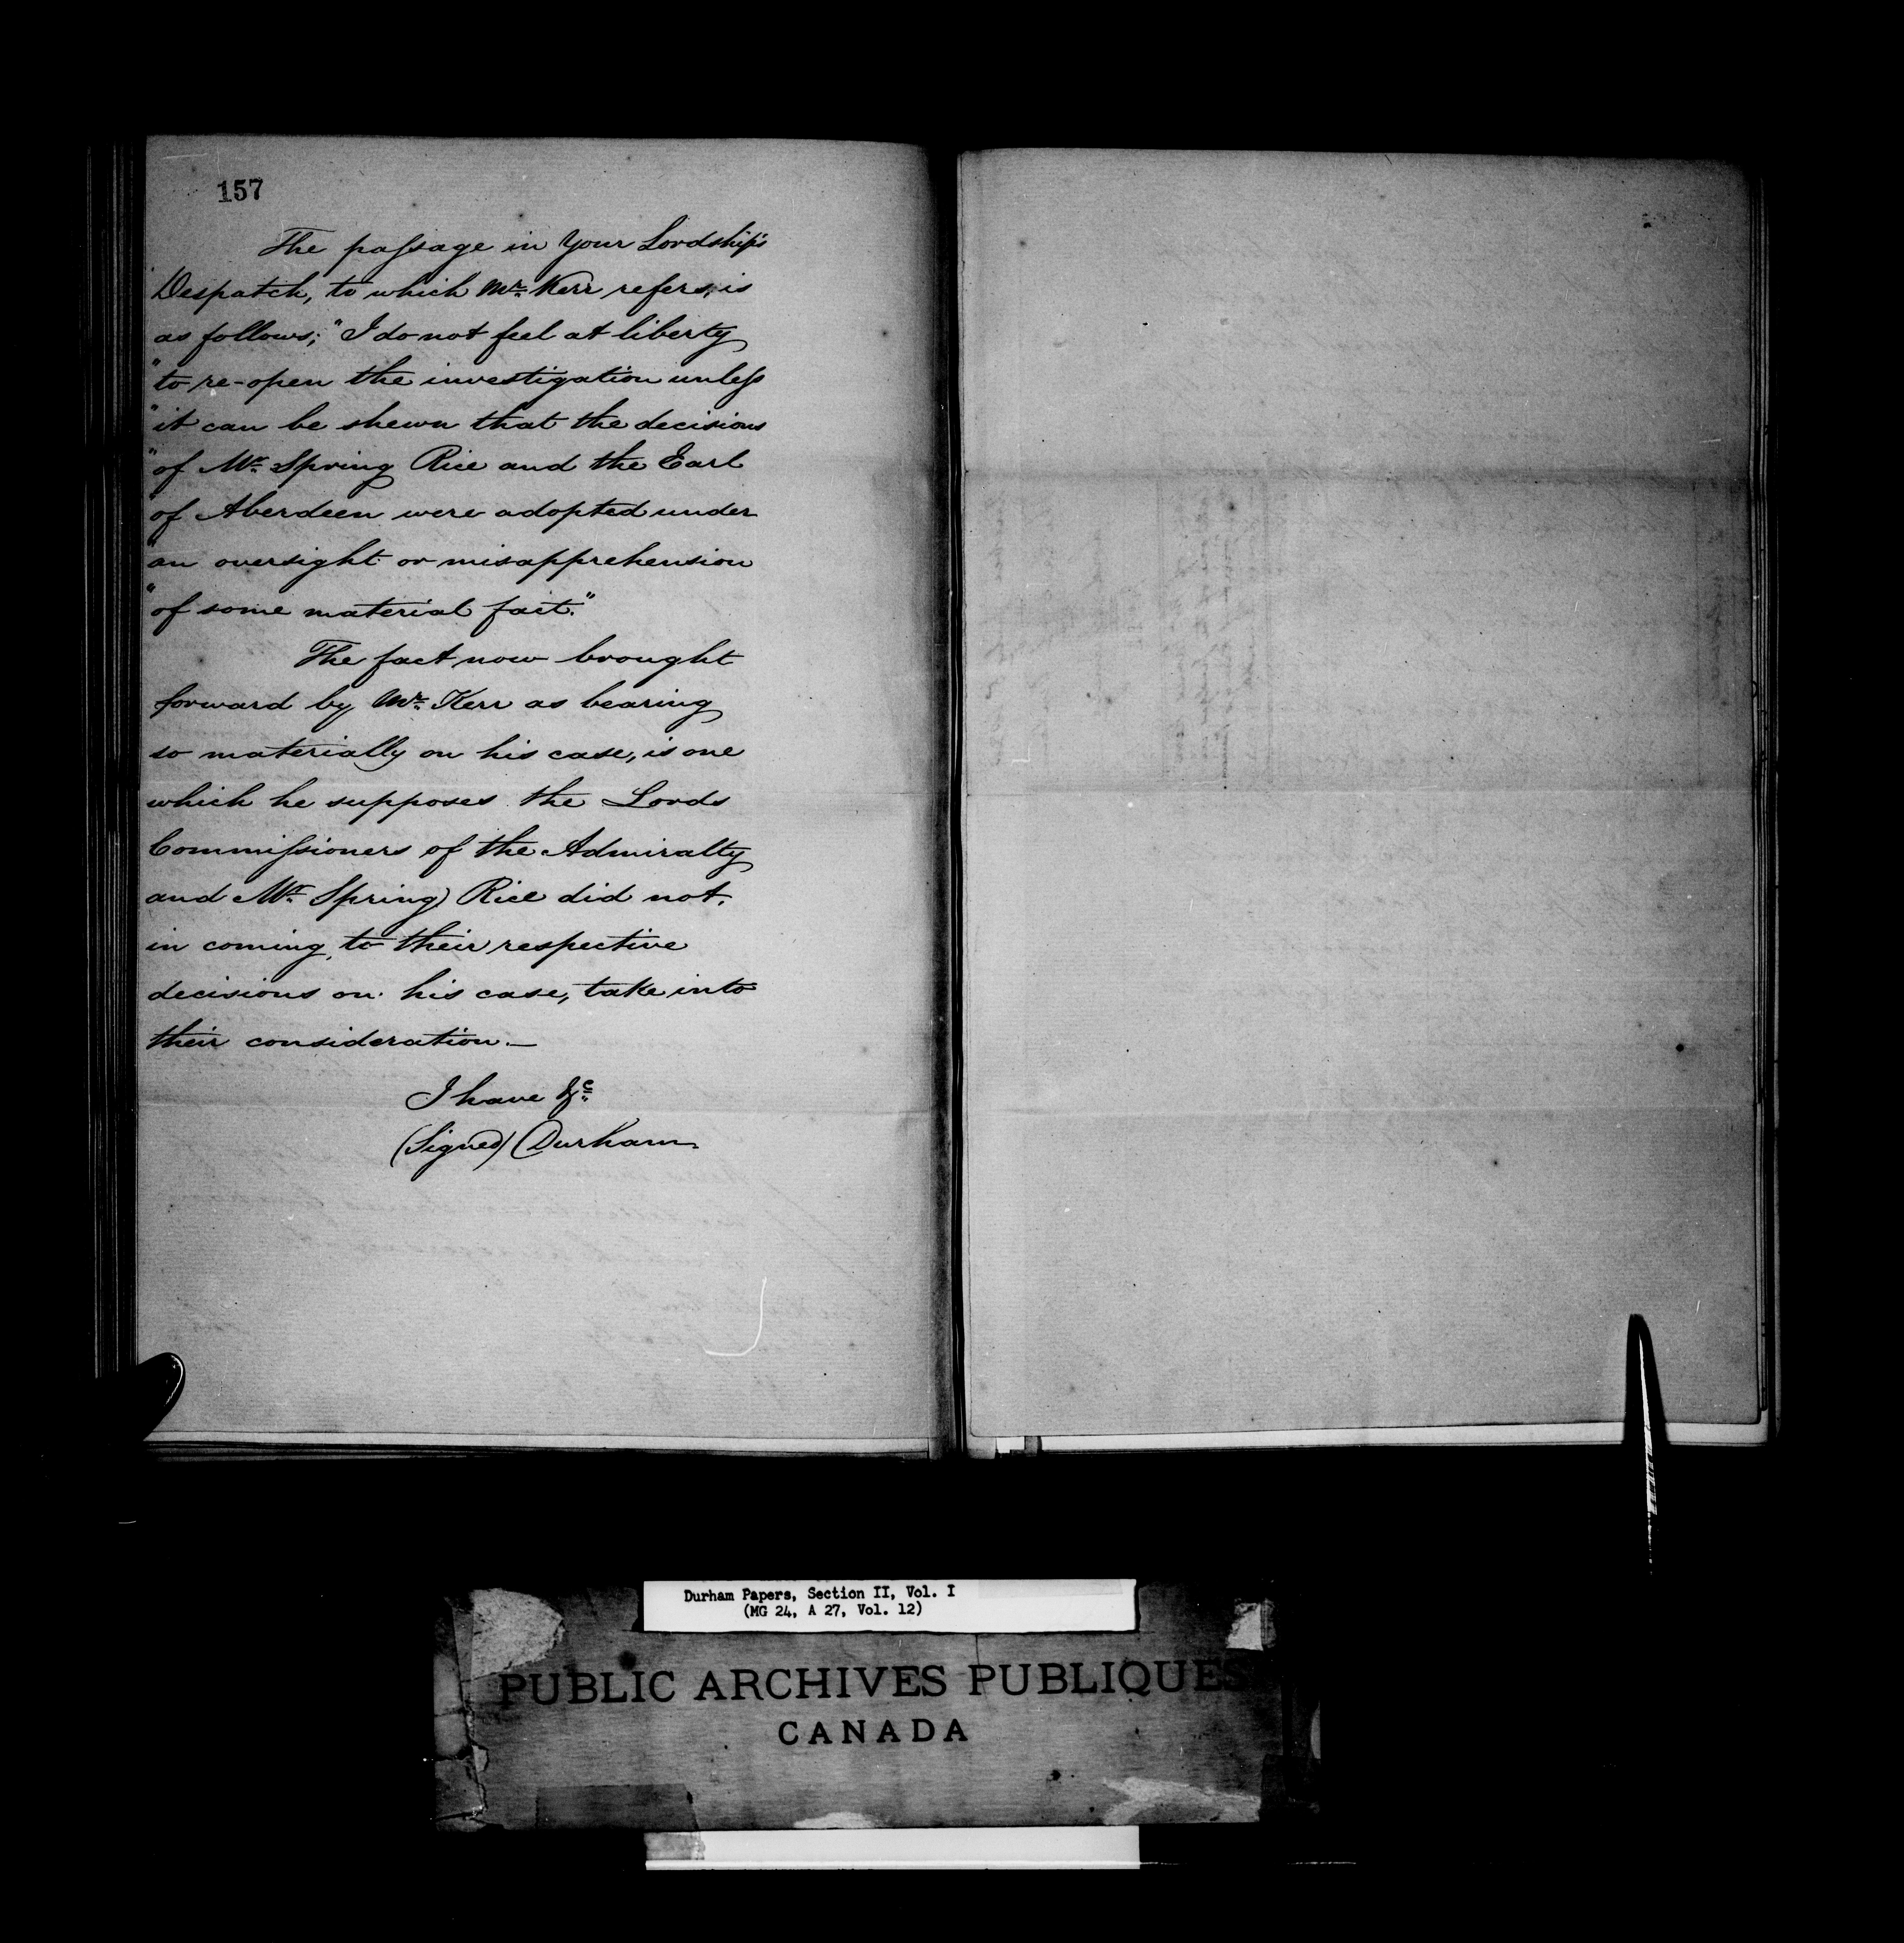 157
The passage in Your Lordship's
Despatch, to which Mr. Kerr refers, is
as follows; "I do not feel at liberty
"to re-open the investigation unless
"it can be shewn that the decisions
"of Mr. Spring Rice and the Earl
"of Aberdeen were adopted under
"an oversight or misapprehension
"of some material fact."
The fact now brought
forward by Mr. Kerr as bearing
so materially on his case, is one
which he supposes the Lords
Commissioners of the Admiralty
and Mr. Spring Rice did not,
in coming to their respective
decisions on his case, take into
their consideration.—
I have &c.
(Signed) Durham
Durham Papers, Section II, Vol. I
(MG 24, A 27, Vol. 12)
PUBLIC ARCHIVES PUBLIQUES
CANADA